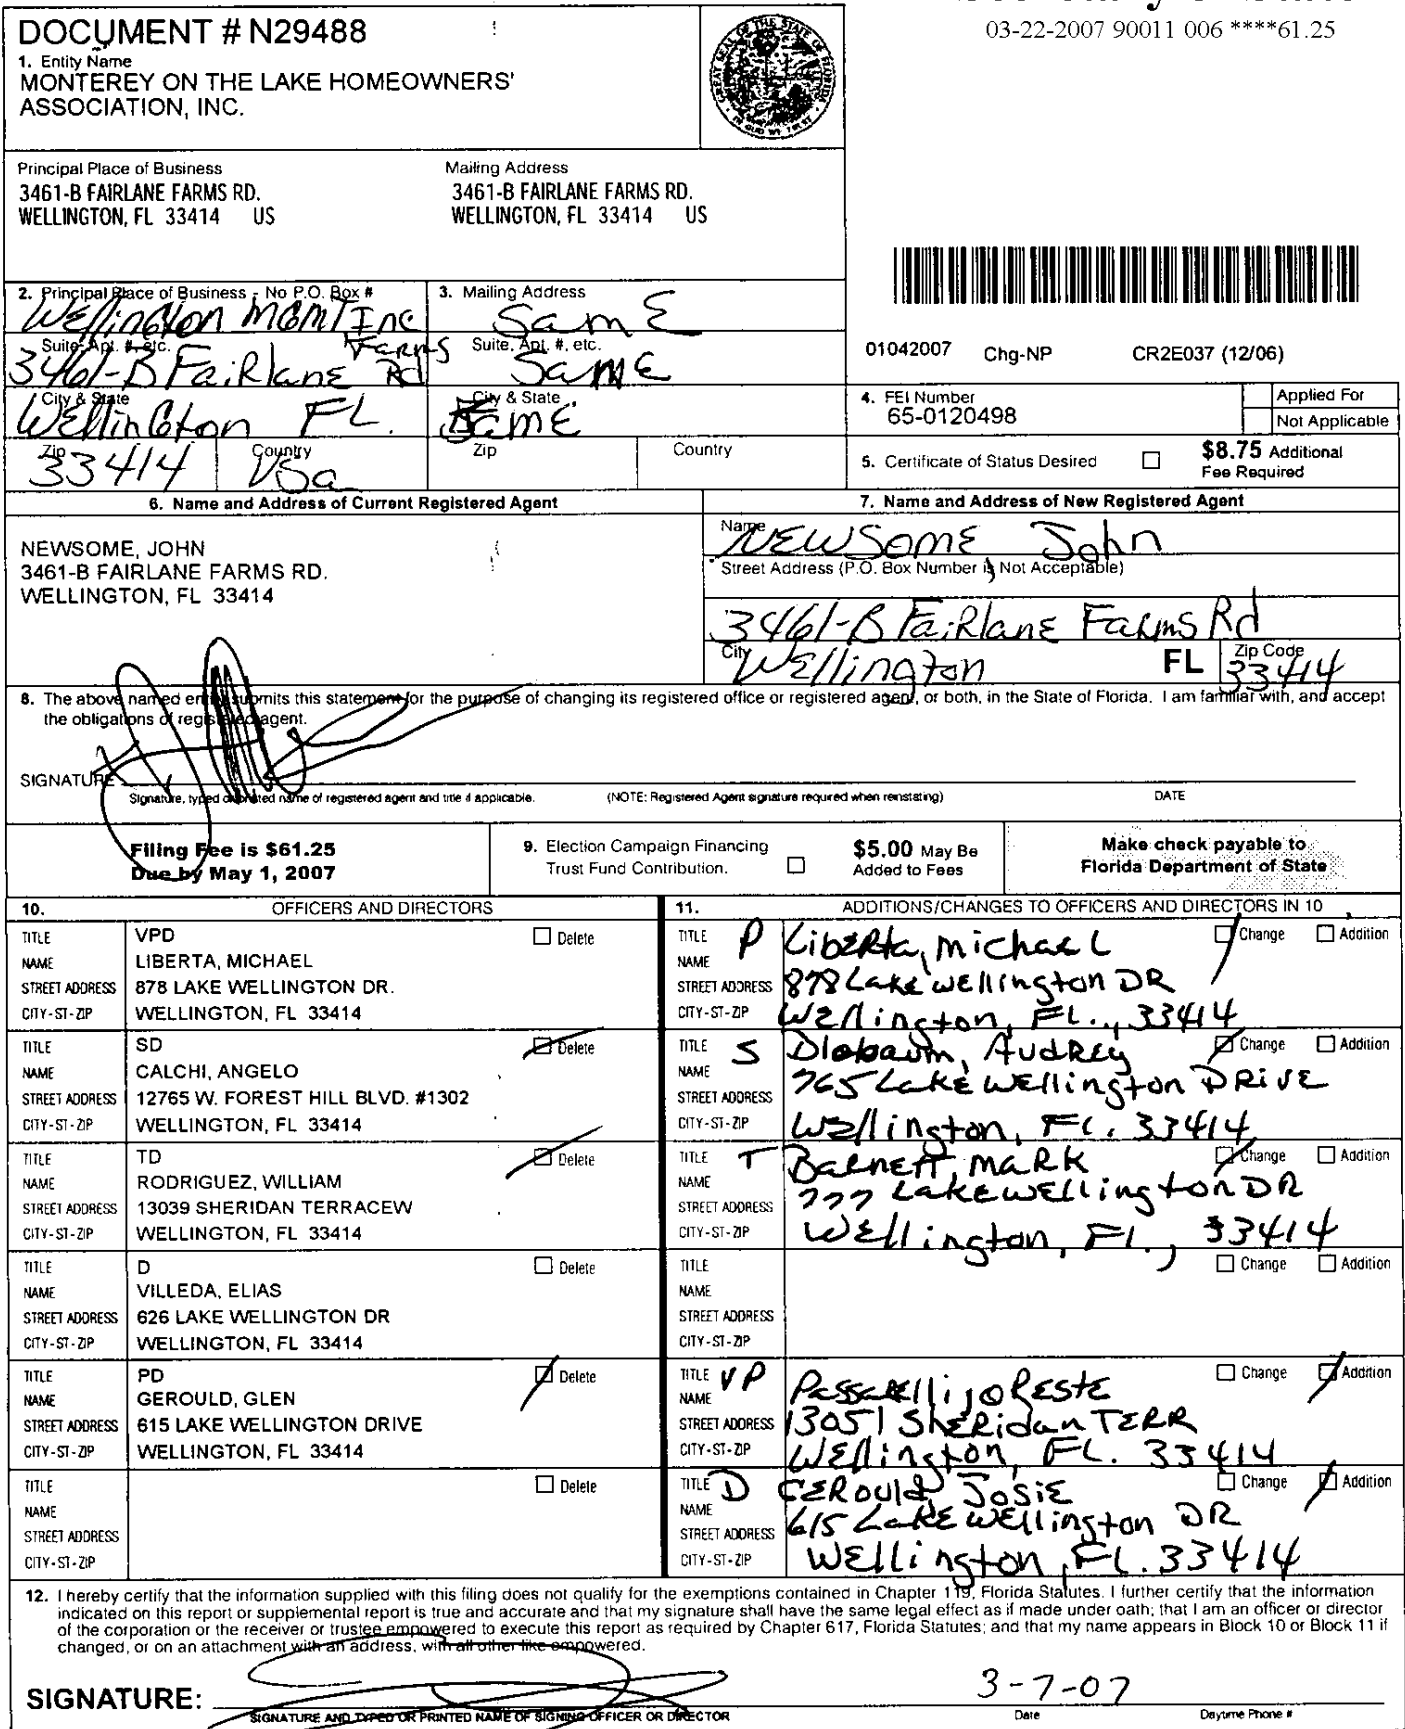 03-22-2007 90011 006 ****61.25
DOCUMENT # N29488
1. Entity Name
MONTEREY ON THE LAKE HOMEOWNERS'
ASSOCIATION, INC.
Principal Place of Business
3461-B FAIRLANE FARMS RD.
WELLINGTON, FL 33414 US
Mailing Address
3461-B FAIRLANE FARMS RD.
WELLINGTON, FL 33414 US
2. Principal Place of Business - No P.O. Box #
Wellington MGMT Inc
Suite, Apt. #, etc.
3461-B Fairlane Farms Rd
City & State
Wellington FL.
Zip
33414
Country
USa
3. Mailing Address
Same
Suite, Apt. #, etc.
Same
City & State
Same
Zip
Country
01042007 Chg-NP CR2E037 (12/06)
4. FEI Number
65-0120498
Applied For
Not Applicable
5. Certificate of Status Desired
$8.75 Additional
Fee Required
6. Name and Address of Current Registered Agent
NEWSOME, JOHN
3461-B FAIRLANE FARMS RD.
WELLINGTON, FL 33414
7. Name and Address of New Registered Agent
Name
NEWSOME, John
Street Address (P.O. Box Number is Not Acceptable)
3461-B Fairlane Farms Rd
City
Wellington
FL
Zip Code
33414
8. The above named entity submits this statement for the purpose of changing its registered office or registered agent, or both, in the State of Florida. I am familiar with, and accept
the obligations of registered agent.
SIGNATURE
Signature, typed or printed name of registered agent and title if applicable.
(NOTE: Registered Agent signature required when reinstating)
DATE
Filing Fee is $61.25
Due by May 1, 2007
9. Election Campaign Financing
Trust Fund Contribution.
$5.00 May Be
Added to Fees
Make check payable to
Florida Department of State
10. OFFICERS AND DIRECTORS
TITLE VPD Delete
NAME LIBERTA, MICHAEL
STREET ADDRESS 878 LAKE WELLINGTON DR.
CITY-ST-ZIP WELLINGTON, FL 33414
TITLE SD Delete
NAME CALCHI, ANGELO
STREET ADDRESS 12765 W. FOREST HILL BLVD. #1302
CITY-ST-ZIP WELLINGTON, FL 33414
TITLE TD Delete
NAME RODRIGUEZ, WILLIAM
STREET ADDRESS 13039 SHERIDAN TERRACEW
CITY-ST-ZIP WELLINGTON, FL 33414
TITLE D Delete
NAME VILLEDA, ELIAS
STREET ADDRESS 626 LAKE WELLINGTON DR
CITY-ST-ZIP WELLINGTON, FL 33414
TITLE PD Delete
NAME GEROULD, GLEN
STREET ADDRESS 615 LAKE WELLINGTON DRIVE
CITY-ST-ZIP WELLINGTON, FL 33414
TITLE Delete
NAME
STREET ADDRESS
CITY-ST-ZIP
11. ADDITIONS/CHANGES TO OFFICERS AND DIRECTORS IN 10
TITLE P Change Addition
NAME Liberta, Michael
STREET ADDRESS 878 Lake Wellington DR
CITY-ST-ZIP Wellington, FL., 33414
TITLE S Change Addition
NAME Audrey
STREET ADDRESS 765 Lake Wellington DRive
CITY-ST-ZIP Wellington, FL. 33414
TITLE T Change Addition
NAME Barnett, Mark
STREET ADDRESS 777 Lake Wellington DR
CITY-ST-ZIP Wellington, Fl., 33414
TITLE Change Addition
NAME
STREET ADDRESS
CITY-ST-ZIP
TITLE VP Change Addition
NAME Passarelli, ORESTE
STREET ADDRESS 13051 Sheridan TERR
CITY-ST-ZIP Wellington, FL. 33414
TITLE D Change Addition
NAME GEROULD, JOSIE
STREET ADDRESS 615 Lake Wellington DR
CITY-ST-ZIP Wellington, FL. 33414
12. I hereby certify that the information supplied with this filing does not qualify for the exemptions contained in Chapter 119, Florida Statutes. I further certify that the information
indicated on this report or supplemental report is true and accurate and that my signature shall have the same legal effect as if made under oath; that I am an officer or director
of the corporation or the receiver or trustee empowered to execute this report as required by Chapter 617, Florida Statutes; and that my name appears in Block 10 or Block 11 if
changed, or on an attachment with an address, with all other like empowered.
SIGNATURE:
3-7-07
SIGNATURE AND TYPED OR PRINTED NAME OF SIGNING OFFICER OR DIRECTOR
Date
Daytime Phone #